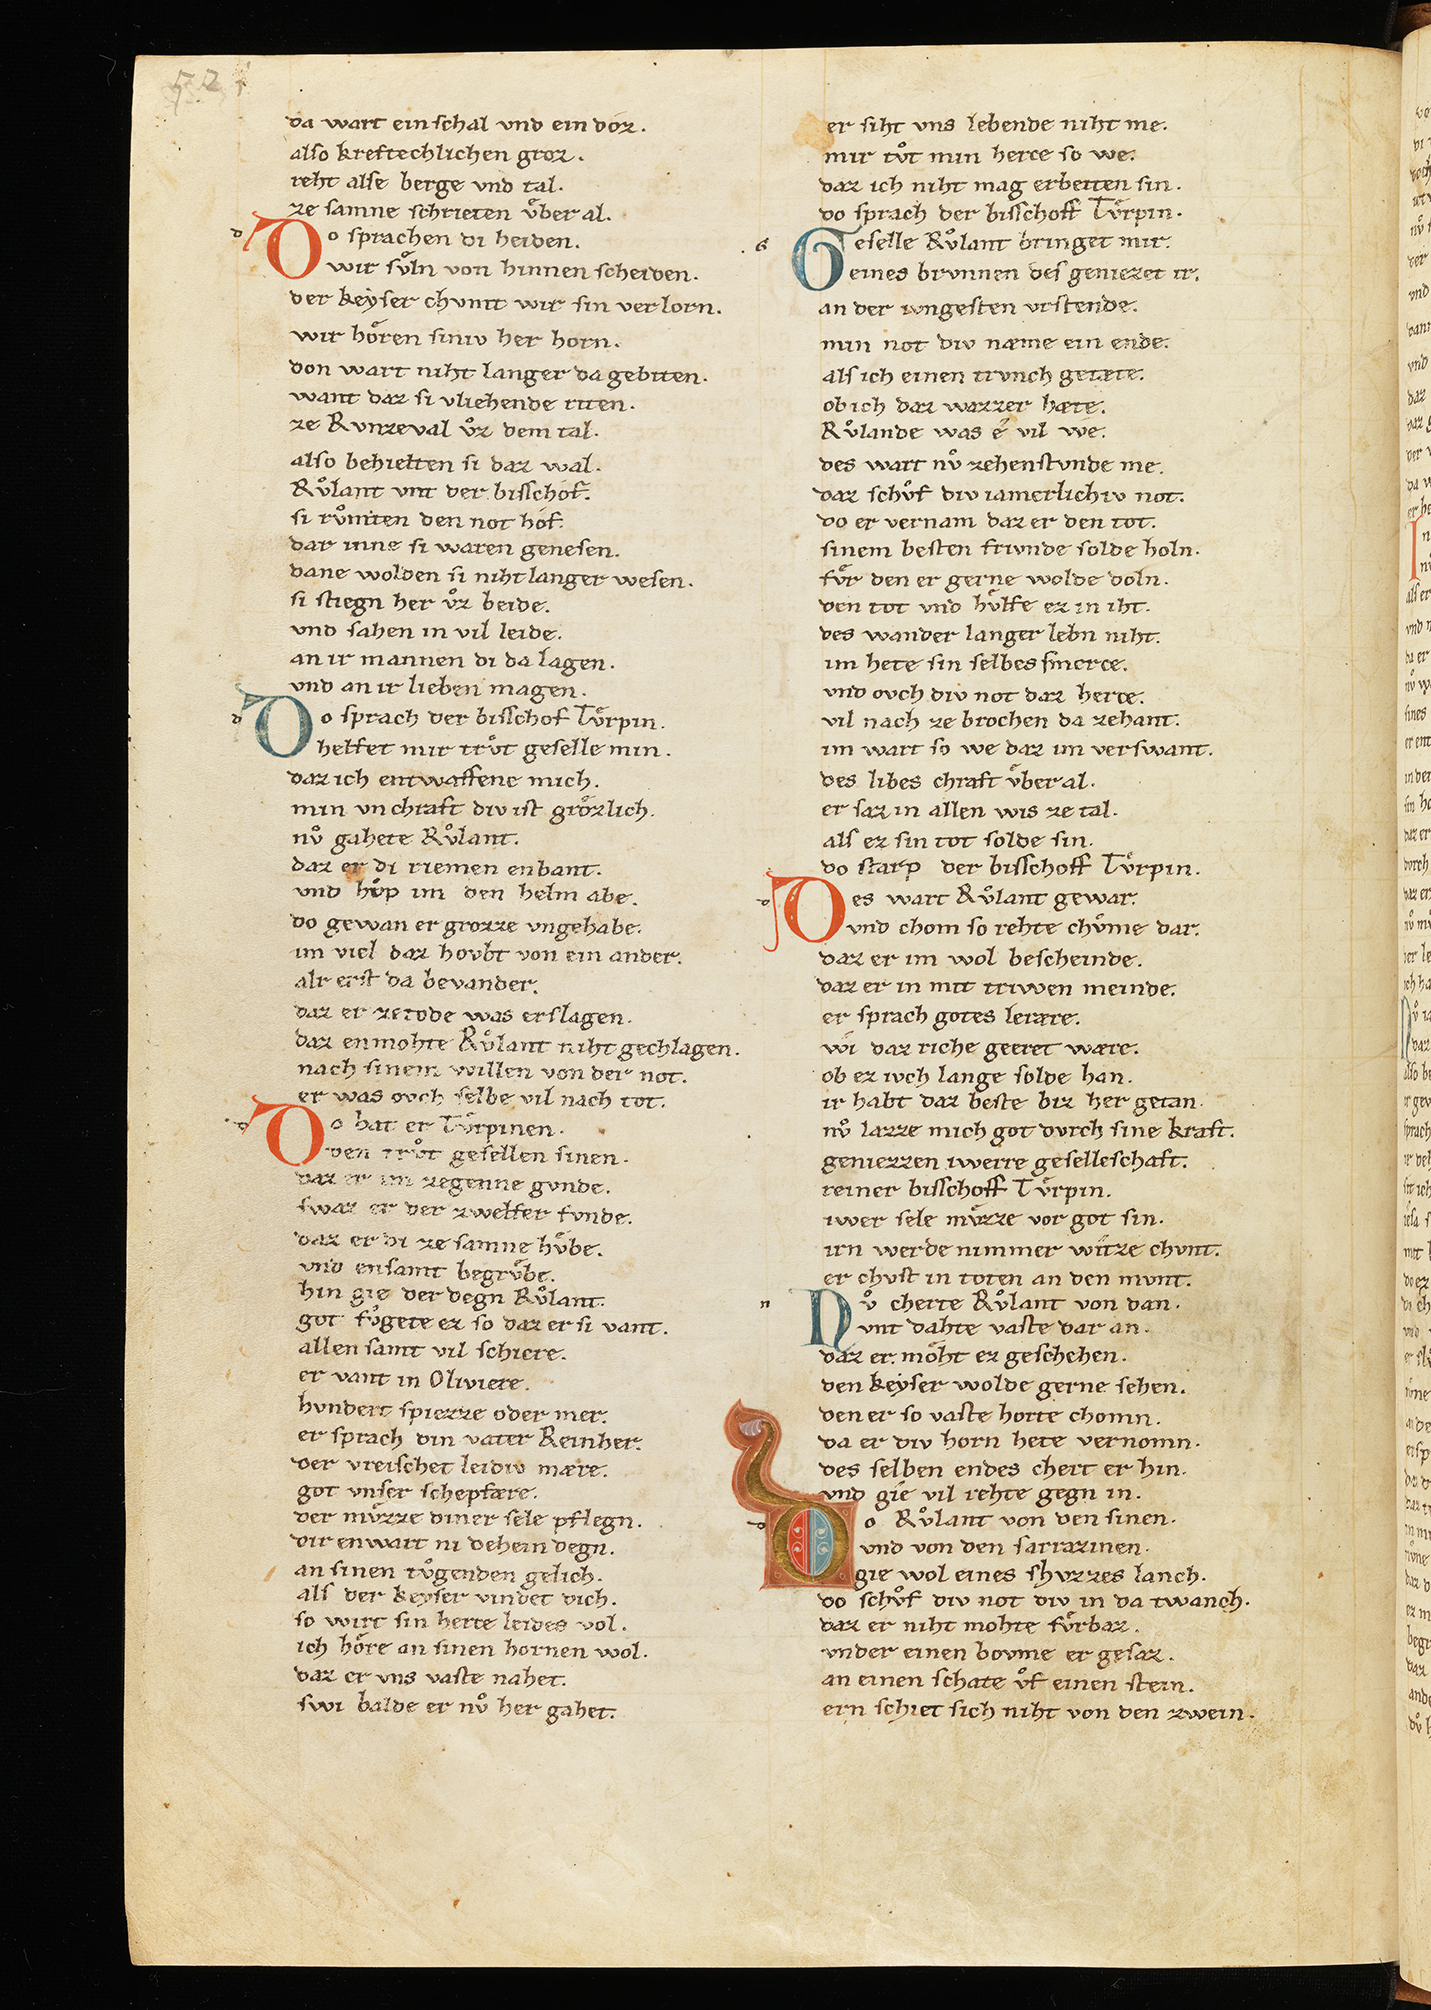 521
da wart ein schal vnd ein doz.
also kreftechlichen groz.
reht alse berge vnd tal.
ze samne schrieten vͤber al.
d
Do sprachen di heiden.
wir svͤln von hinnen scheiden.
der keyser chvmt wir sin verlorn.
wir hoͤren siniv her horn.
don wart niht langer da gebiten.
want daz si vliehende riten.
ze Rvnzeval vͦz dem tal.
also behielten si daz wal.
Rvͦlant vnt der bisschof.
si rvͦmten den not hof.
dar inne si waren genesen.
dane wolden si niht langer wesen.
si stiegn her vͦz beide.
vnd sahen in vil leide.
an ir mannen di da lagen.
vnd an ir lieben magen.
d
Do sprach der bisschof Tvͤrpin.
helfet mir trvͦt geselle min.
daz ich entwaffene mich.
min vnchraft div ist groͤzlich.
nvͦ gahete Rvͦlant.
daz er di riemen enbant.
vnd hvͦp im den helm abe.
do gewan er grozze vngehabe.
im viel daz hovbt von ein ander.
alr erst da bevander.
daz er ze tode was erslagen.
daz enmohte Rvͦlant niht gechlagen.
nach sinem willen von der not.
er was ovch selbe vil nach tot.
d
Do bat er Tvͤrpinen.
den trvͦt gesellen sinen.
daz er im zegenne gvnde.
swaz er der zwelfer fvnde.
daz er di ze samne hvͤbe.
vnd ensamt begrvͤbe.
hin gie der degn Rvͦlant.
got fvͦgete ez so daz er si vant.
allen samt vil schiere.
er vant in Oliviere.
hvndert spiezze oder mer.
er sprach din vater Reinher.
der vreischet leidiv mære.
got vnser schepfære.
der mvͤzze diner sele pflegn.
dir enwart ni dehein degn.
an sinen tvͦgenden gelich.
als der keyser vindet dich.
so wirt sin herce leides vol.
ich hoͤre an sinen hornen wol.
daz er vns vaste nahet.
swi balde er nvͦ her gahet.
er siht vns lebende niht me.
mir tvͦt min herce so we.
daz ich niht mag erbeiten sin.
do sprach der bisschoff Tvͤrpin.
g
Geselle Rvͦlant bringet mir.
eines brvnnen des geniezet ir.
an der ivngesten vrstende.
min not div næme ein ende.
als ich einen trvnch getæte.
ob ich daz wazzer hæte.
Rvͦlande was é vil we.
des wart nvͦ zehenstvnde me.
daz schvͦf div iamerlichiv not.
do er vernam daz er den tot.
sinem besten frivnde solde holn.
fvͤr den er gerne wolde doln.
den tot vnd hvͤlfe ez in iht.
des wander langer lebn niht.
im hete sin selbes smerce.
vnd ovch div not daz herce.
vil nach ze brochen da zehant.
im wart so we daz im verswant.
des libes chraft vͤber al.
er saz in allen wis ze tal.
als ez sin tot solde sin.
do starp der bisschoff Tvͤrpin.
d
Des wart Rvͦlant gewar.
vnd chom so rehte chvͤme dar.
daz er im wol bescheinde.
daz er in mit triwen meinde.
er sprach gotes lerære.
wi daz riche geeret wære.
ob ez ivch lange solde han.
ir habt daz beste biz her getan.
nvͦ lazze mich got dvrch sine kraft.
geniezzen iwerre geselleschaft.
reiner bisschoff Tvͤrpin.
iwer sele mvͤzze vor got sin.
irn werde nimmer witze chvnt.
er chvst in toten an den mvnt.
n
Nvͦ cherte Rvͦlant von dan.
vnt dahte vaste dar an.
daz er moͤht ez geschehen.
den keyser wolde gerne sehen.
den er so vaste horte chomn.
da er div horn hete vernomn.
des selben endes chert er hin.
vnd gie vil rehte gegn in.
d
Do Rvͦlant von den sinen.
vnd von den sarrazinen.
gie wol eines shvzzes lanch.
do schvͦf div not div in da twanch.
daz er niht mohte fvͤrbaz.
vnder einen bovme er gesaz.
an einen schate vͦf einen stein.
ern schiet sich niht von den zwein.